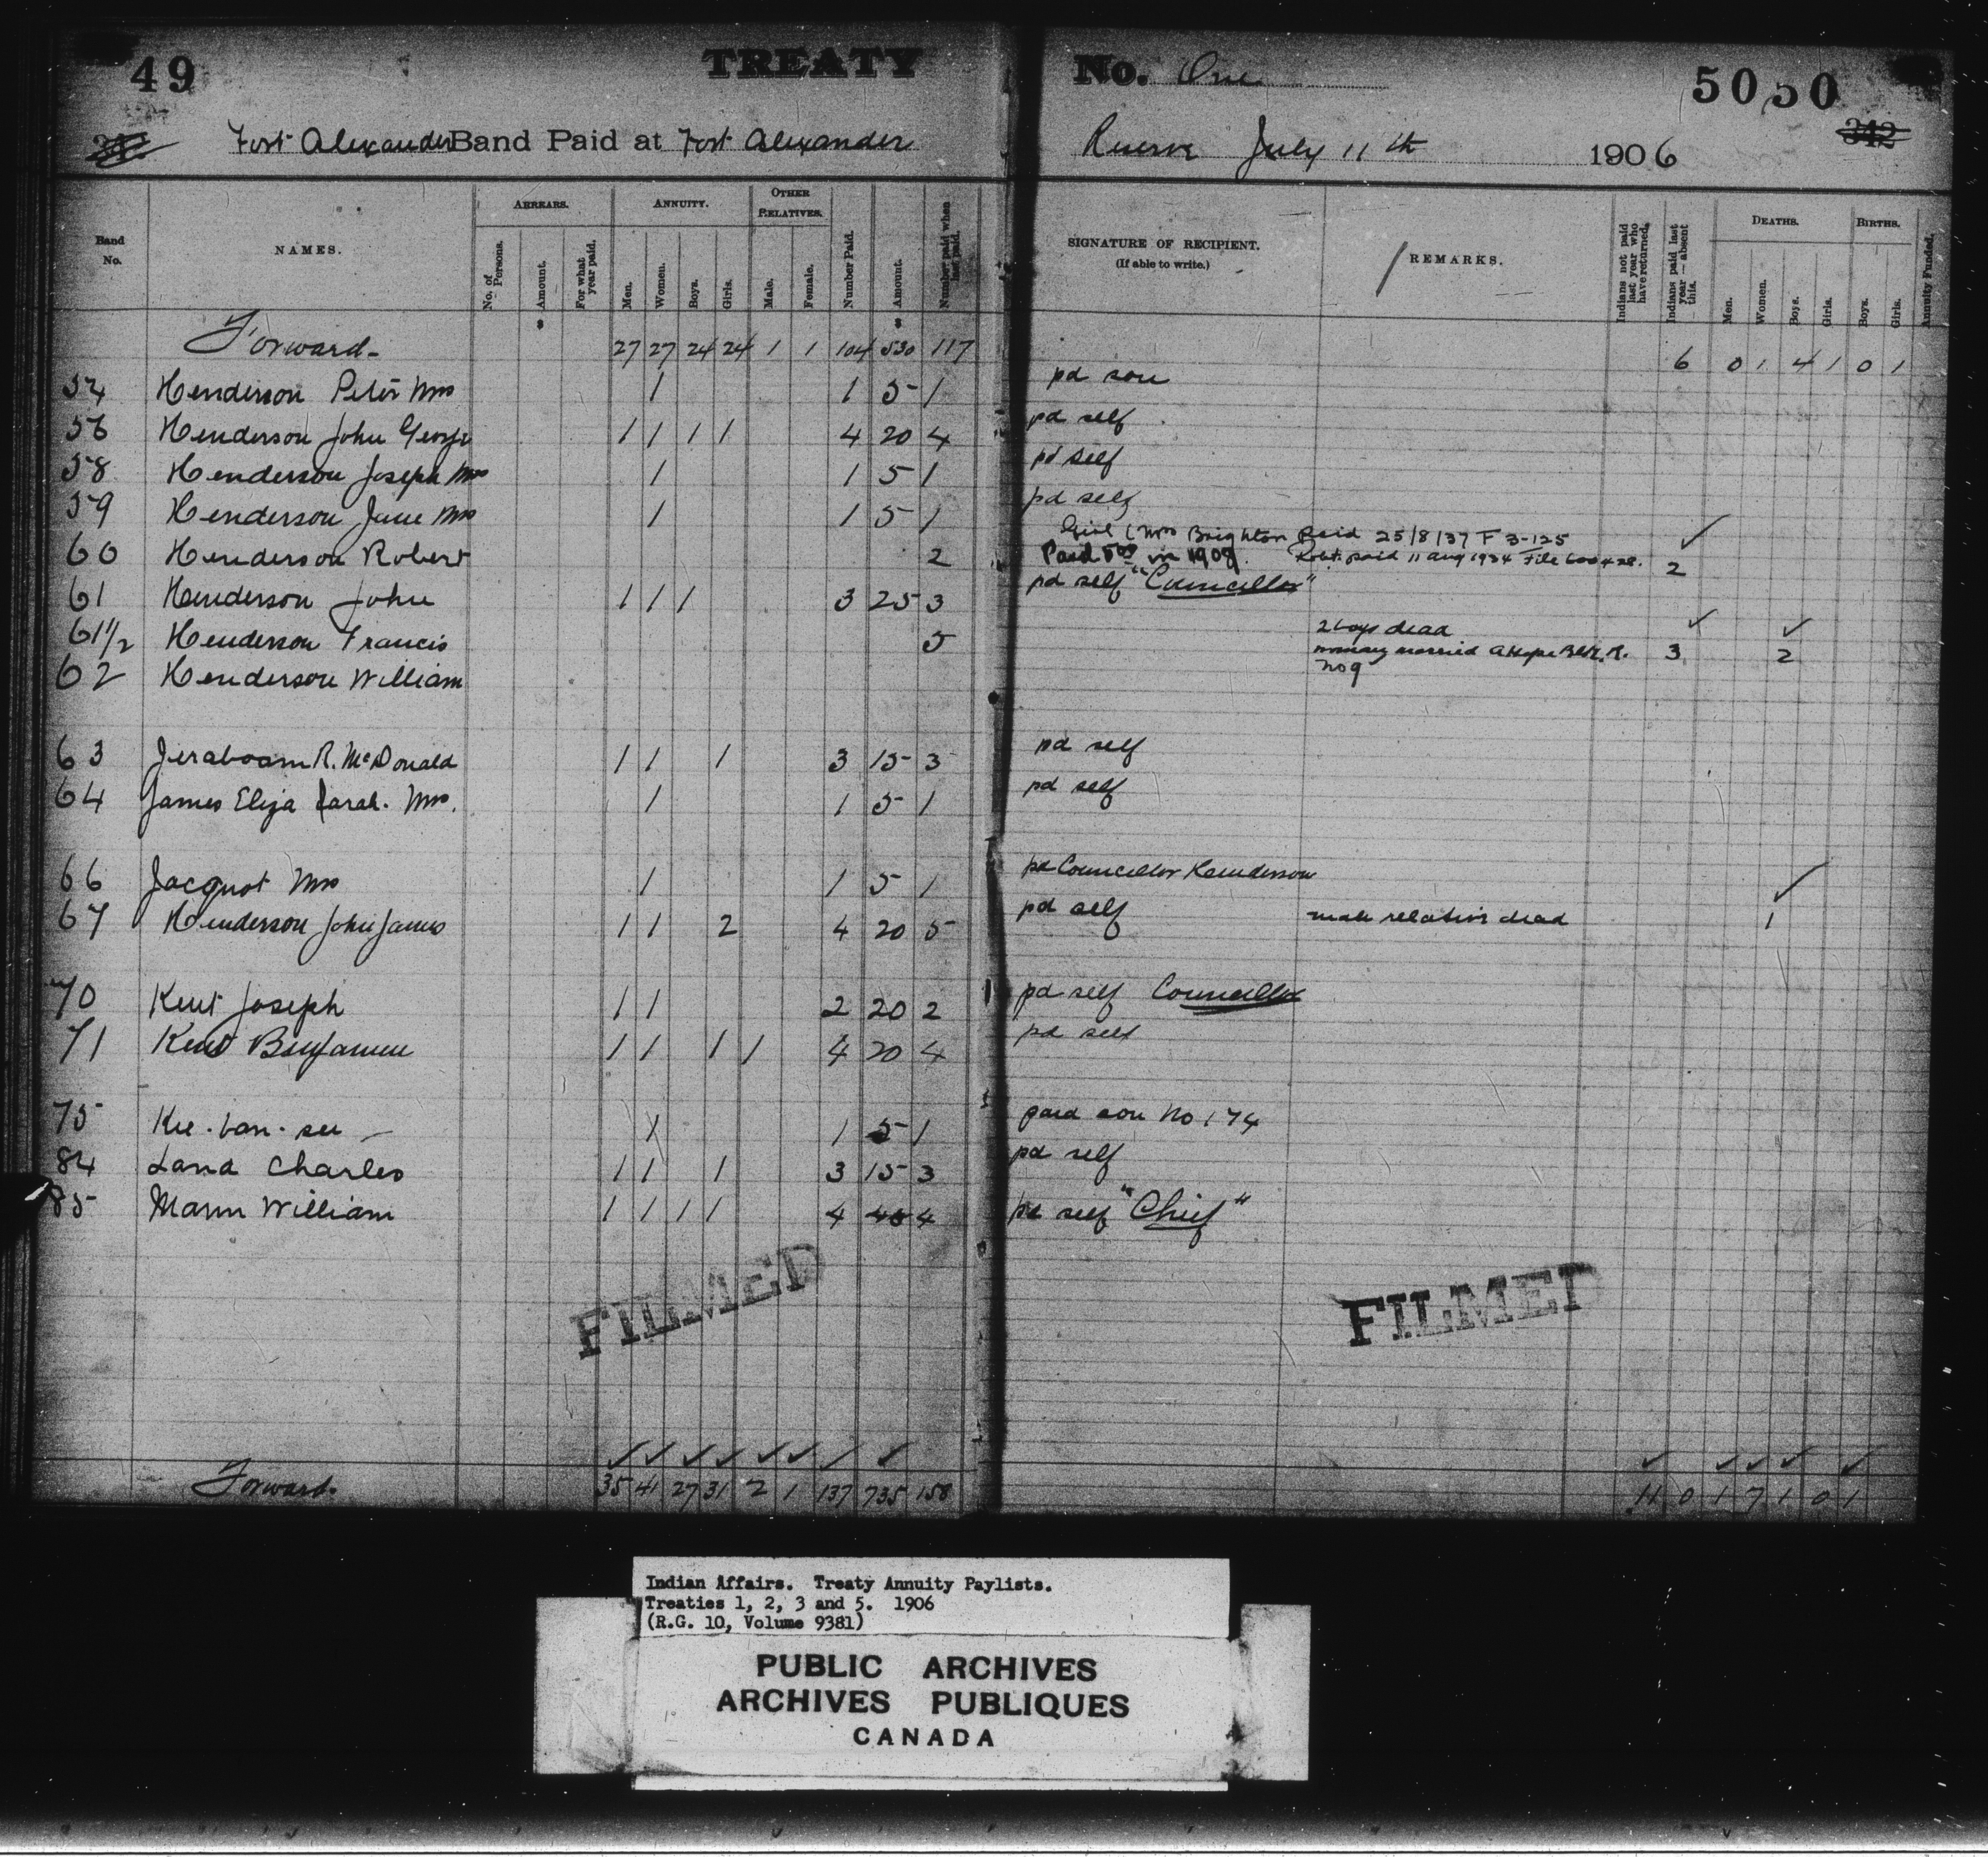 49 TREATY No. One 50 50
Fort Alexander Band Paid at Fort Alexander Reserve July 11th 1906 342
Band No. NAMES. ARREARS. ANNUITY. OTHER RELATIVES. SIGNATURE OF RECIPIENT. (If able to write.) REMARKS. DEATHS. BIRTHS.
No. of Persons. Amount. For what year paid. Men. Women. Boys. Girls. Male. Female. Number Paid. Amount. Number paid when last paid. Indians not paid last year who have returned. Indians paid last year — absent this. Men. Women. Boys. Girls. Boys. Girls. Annuity Funded.
Forward - 27 27 24 24 1 1 104 530 117 6 0 1 4 1 0 1
54 Henderson Peter Mrs 1 1 5 1 pd son
56 Henderson John George 1 1 1 1 4 20 4 pd self
58 Henderson Joseph Mrs 1 1 5 1 pd self
59 Henderson Jane Mrs 1 1 5 1 pd self
Girl (Mrs Brighton Paid 25/8/37 F 3-125 ✓
60 Henderson Robert 2 Paid 5.00 in 1908. Robt. paid 11 Aug 1934 File 2
61 Henderson John 1 1 1 3 25 3 pd self "Councillor"
61 1/2 Henderson Francis 5 2 boys dead ✓ ✓
married 3 2
62 Henderson William No 9
63 Jeraboam R. McDonald 1 1 1 3 15 3 pd self
64 James Eliza Sarah. Mrs. 1 1 5 1 pd self
66 Jacquot Mrs 1 1 5 1 pd Councillor Henderson ✓
67 Henderson John James 1 1 2 4 20 5 pd self male relative dead 1
70 Kent Joseph 1 1 2 20 2 pd self Councillor
71 Kent Benjamin 1 1 1 1 4 20 4 pd self
75 Kee-ban-see - 1 1 5 1 paid son No 174
84 Land Charles 1 1 1 3 15 3 pd self
85 Mann William 1 1 1 1 4 40 4 pd self "Chief"
FILMED FILMED
✓ ✓ ✓ ✓ ✓ ✓ ✓ ✓ ✓ ✓ ✓ ✓ ✓
Forward. 35 41 27 31 2 1 137 735 158 11 0 1 7 1 0 1
Indian Affairs. Treaty Annuity Paylists.
Treaties 1, 2, 3 and 5. 1906
(R.G. 10, Volume 9381)
PUBLIC ARCHIVES
ARCHIVES PUBLIQUES
CANADA